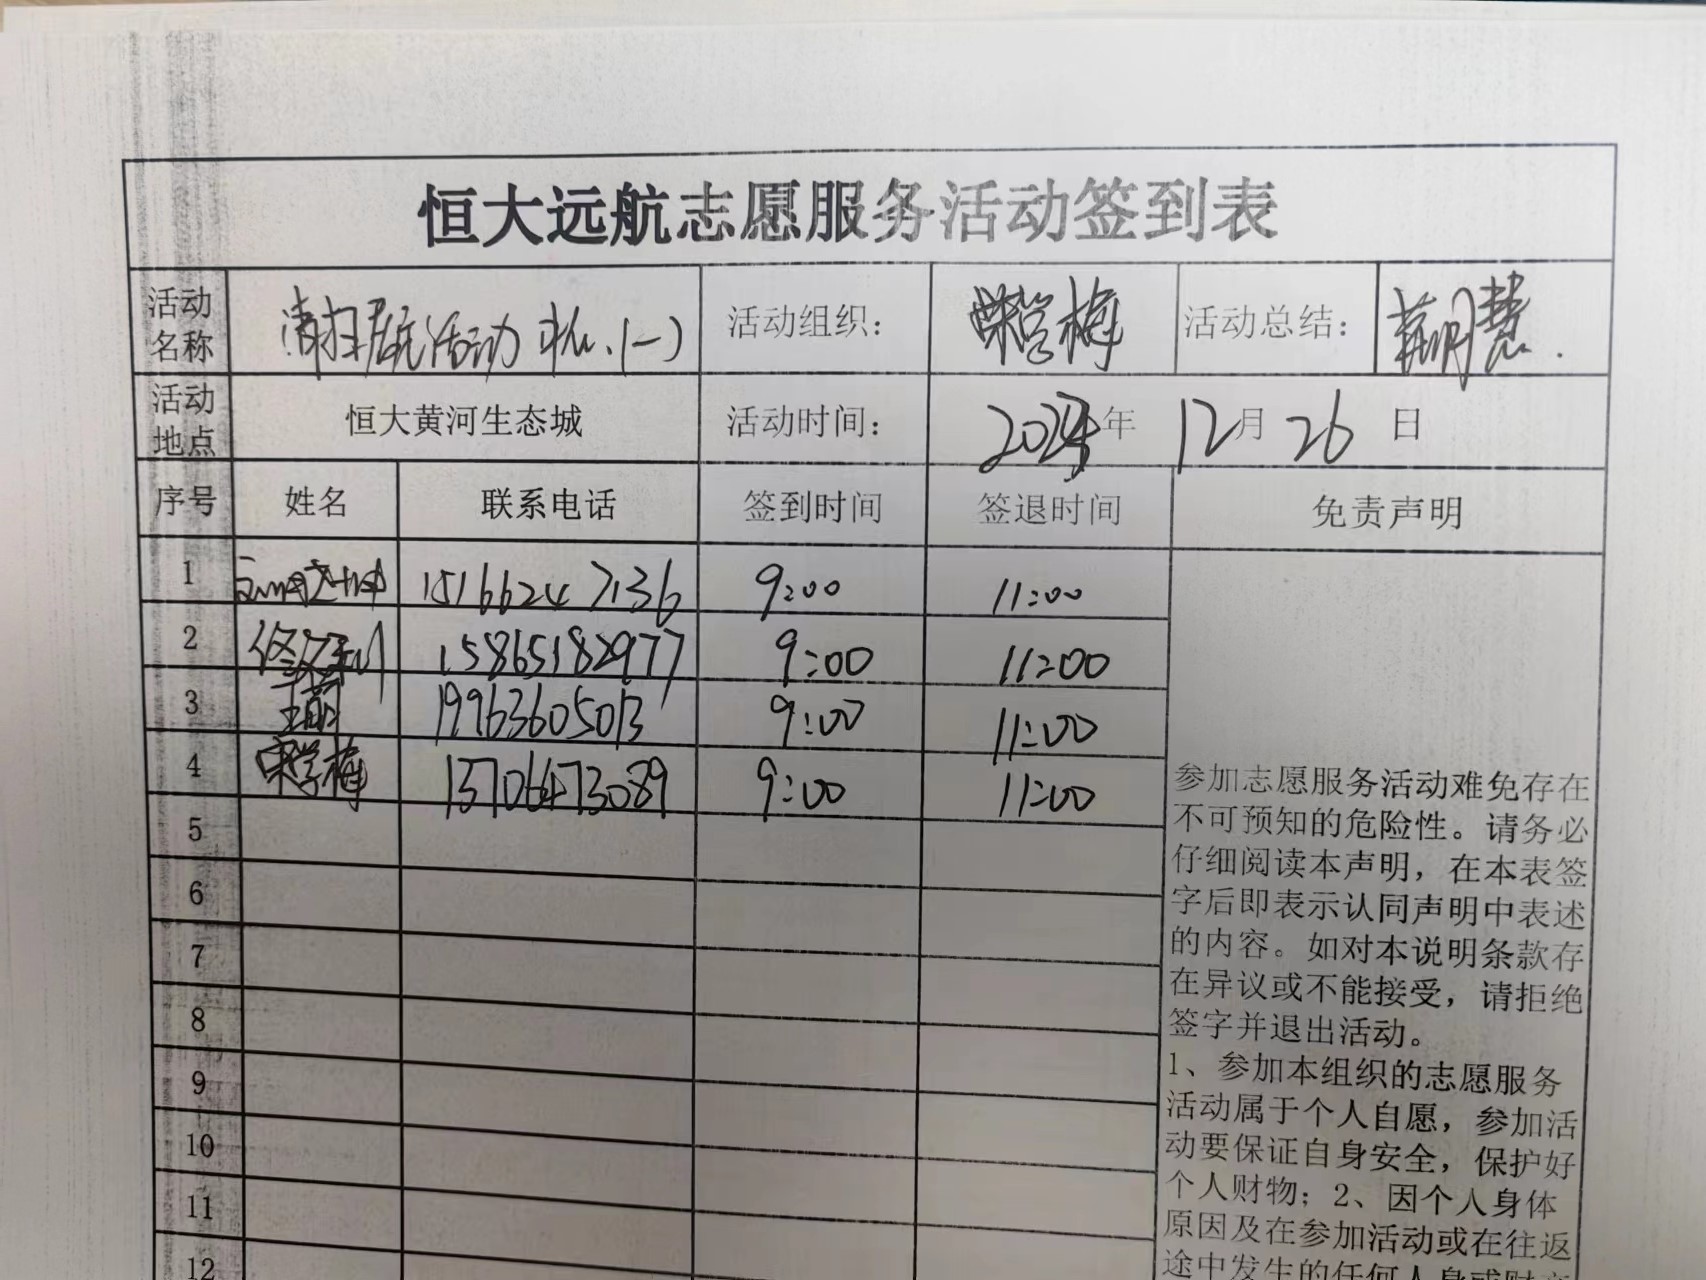 恒大远航志愿服务活动签到表
活动名称 清扫居民活动中心(一) 活动组织： 荣学梅 活动总结： 慧
活动地点 恒大黄河生态城 活动时间： 年 12月 26 日
序号 姓名 联系电话 签到时间 签退时间 免责声明
1 15166247136 9:00 11:00
2 15865182977 9:00 11:00
3 王萌 19963605013 9:00 11:00
4 荣学梅 13706473089 9:00 11:00
5
6
7
8
9
10
11
12
参加志愿服务活动难免存在
不可预知的危险性。请务必
仔细阅读本声明，在本表签
字后即表示认同声明中表述
的内容。如对本说明条款存
在异议或不能接受，请拒绝
签字并退出活动。
1、参加本组织的志愿服务
活动属于个人自愿，参加活
动要保证自身安全，保护好
个人财物；2、因个人身体
原因及在参加活动或在往返
途中发生的任何人身或财产